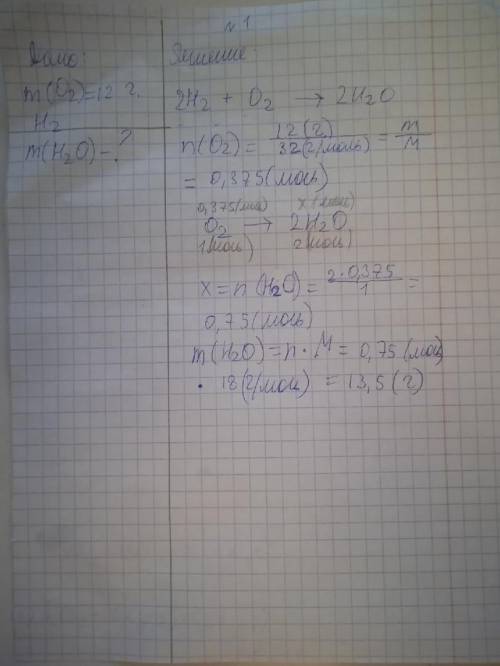 №1
Дано:
Решение:
m(O₂)=12 г.
H₂
m(H₂O)-?
2H₂ + O₂ → 2H₂O
n(O₂) = 12(г)/32(г/моль) = m/M
= 0,375(моль)
0,375(моль) x(моль)
O₂ → 2H₂O
1(моль) 2(моль)
x = n(H₂O) = 2·0,375/1 =
0,75(моль)
m(H₂O) = n · M = 0,75(моль)
· 18(г/моль) = 13,5(г)